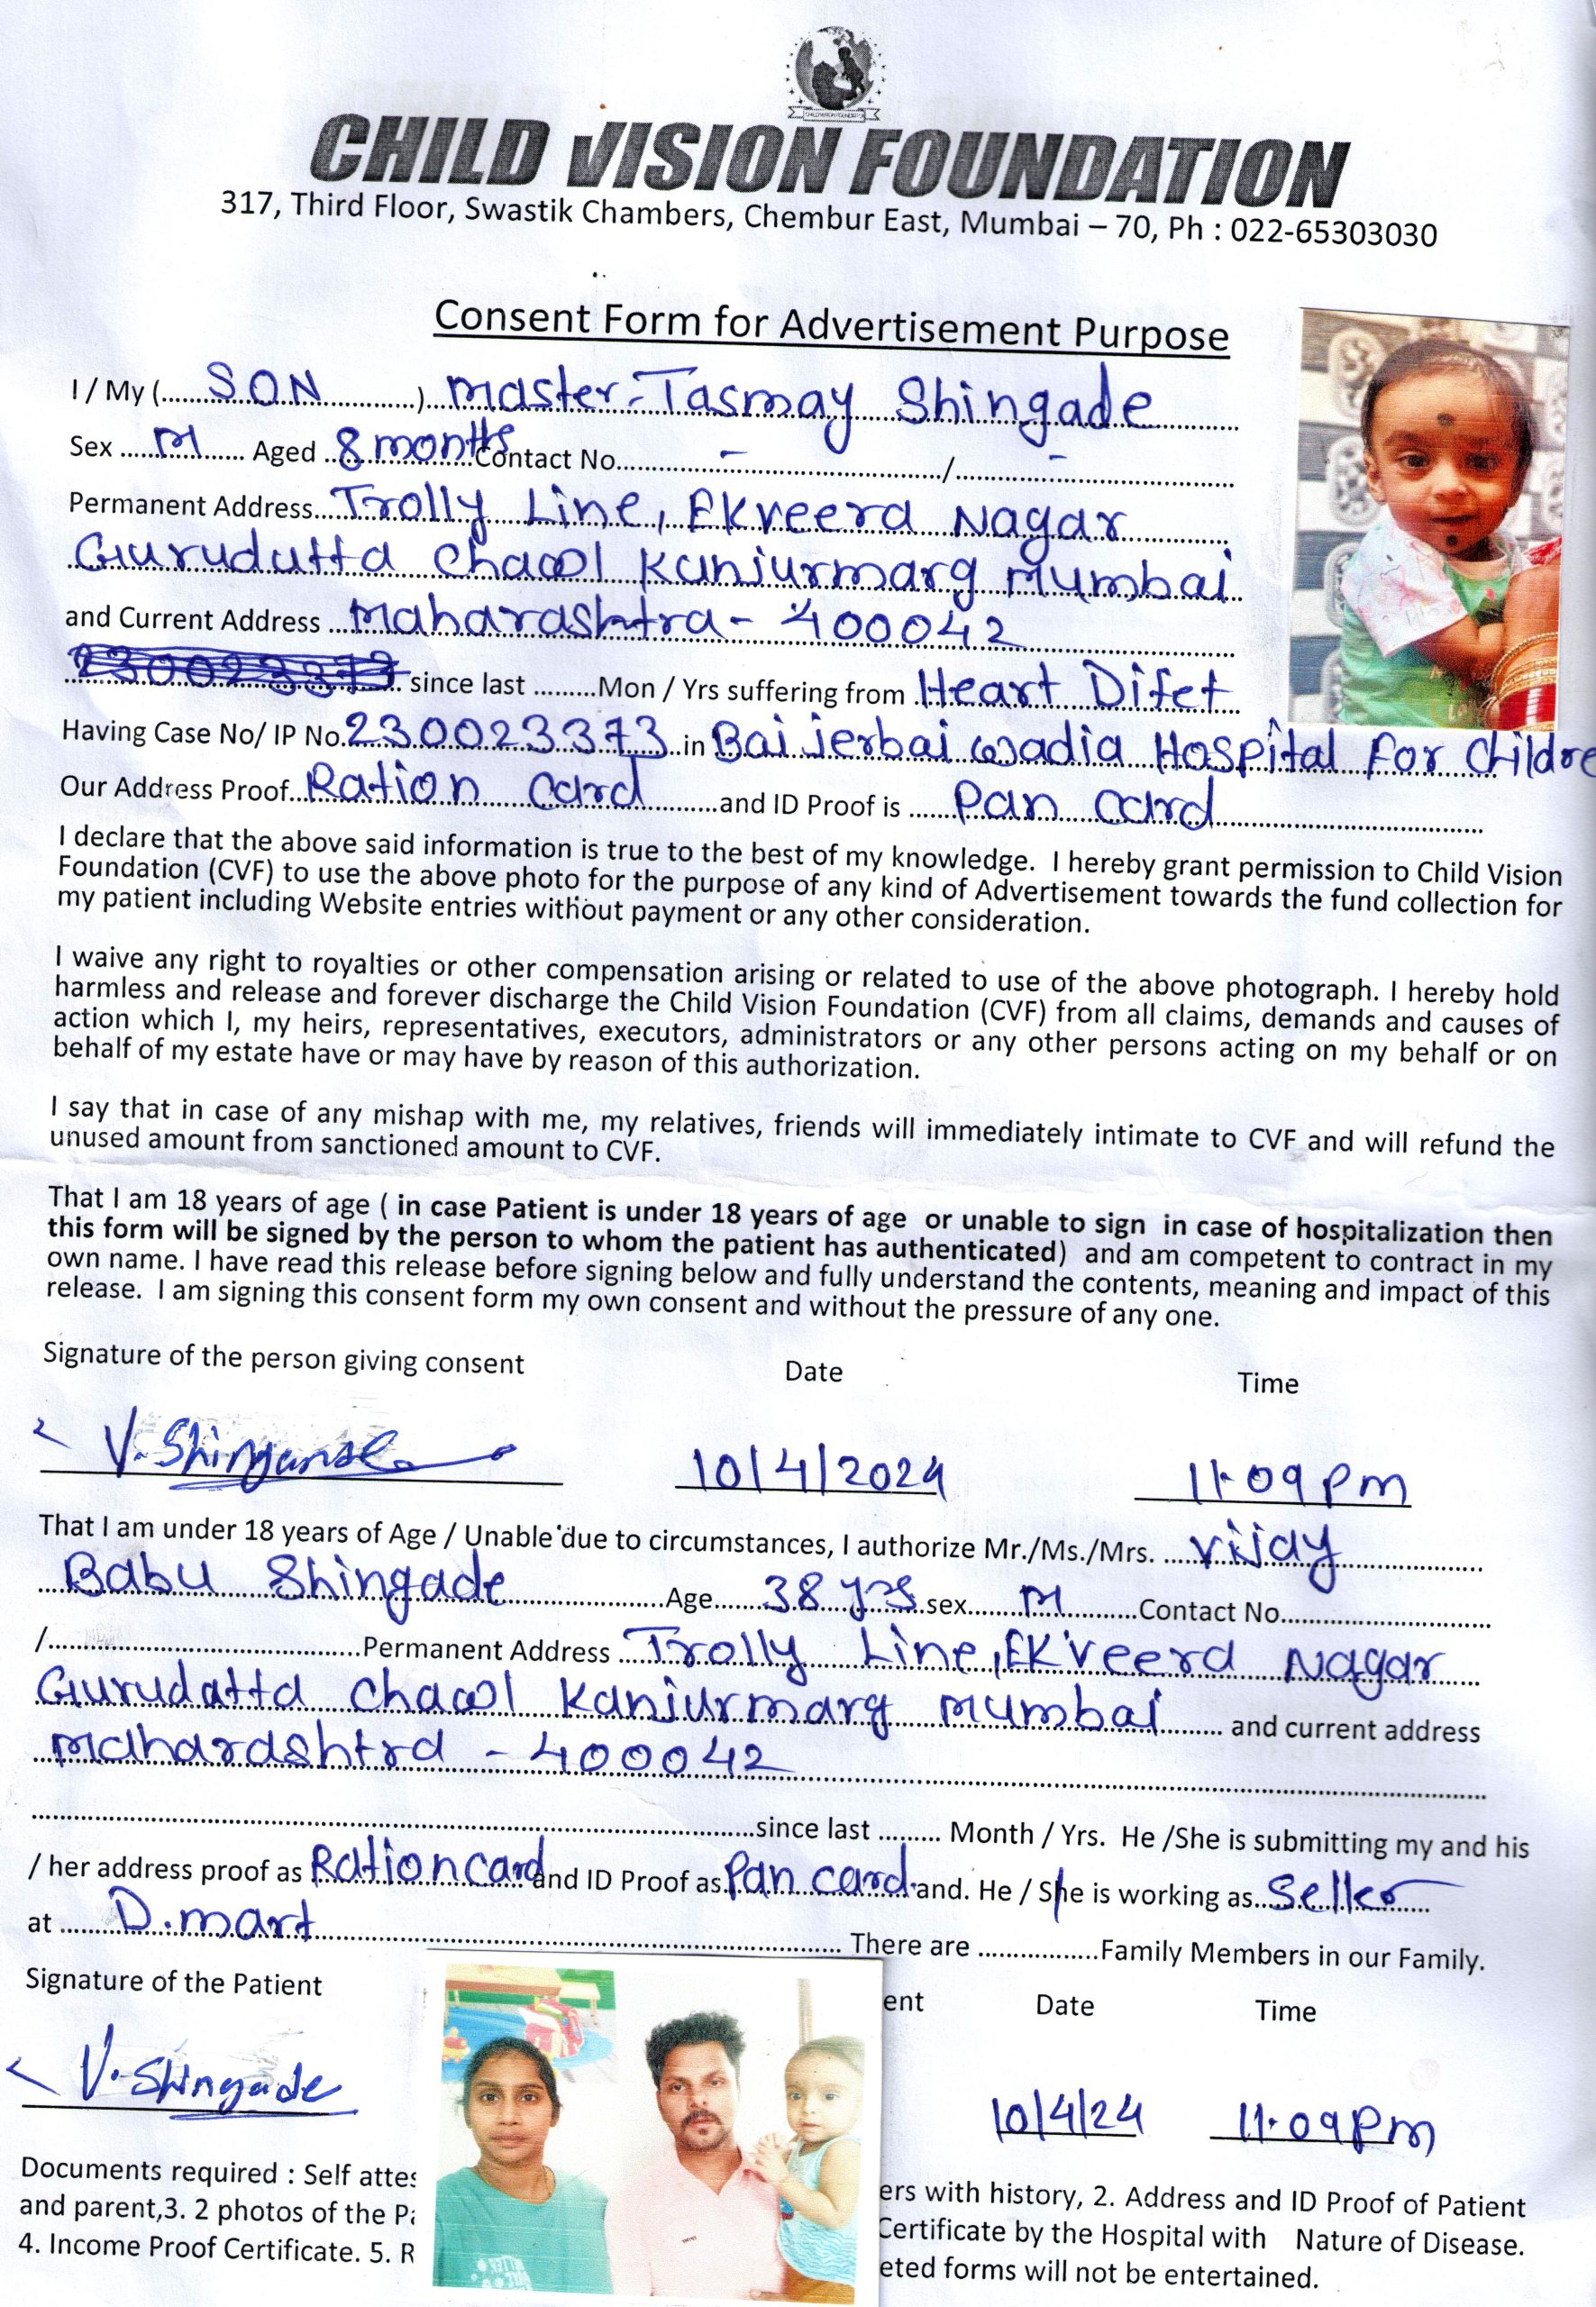 CHILD VISION FOUNDATION
CHILD VISION FOUNDATION
317, Third Floor, Swastik Chambers, Chembur East, Mumbai – 70, Ph : 022-65303030
Consent Form for Advertisement Purpose
I / My (......SON............) Master-Tasmay Shingade
Sex ..... M ...... Aged ..8 months Contact No. - / -
Permanent Address... Trolly Line, Ekveera Nagar
Gurudutta Chawl Kanjurmarg Mumbai
and Current Address ... Maharashtra - 400042
230023373 since last .........Mon / Yrs suffering from Heart Difet
Having Case No/ IP No. 230023373 in Bai jerbai wadia Hospital For Childre
Our Address Proof.. Ration Card ........and ID Proof is ...... Pan Card
I declare that the above said information is true to the best of my knowledge. I hereby grant permission to Child Vision
Foundation (CVF) to use the above photo for the purpose of any kind of Advertisement towards the fund collection for
my patient including Website entries without payment or any other consideration.
I waive any right to royalties or other compensation arising or related to use of the above photograph. I hereby hold
harmless and release and forever discharge the Child Vision Foundation (CVF) from all claims, demands and causes of
action which I, my heirs, representatives, executors, administrators or any other persons acting on my behalf or on
behalf of my estate have or may have by reason of this authorization.
I say that in case of any mishap with me, my relatives, friends will immediately intimate to CVF and will refund the
unused amount from sanctioned amount to CVF.
That I am 18 years of age ( in case Patient is under 18 years of age or unable to sign in case of hospitalization then
this form will be signed by the person to whom the patient has authenticated) and am competent to contract in my
own name. I have read this release before signing below and fully understand the contents, meaning and impact of this
release. I am signing this consent form my own consent and without the pressure of any one.
Signature of the person giving consent Date Time
V. Shingade 10/4/2024 11.09 pm
That I am under 18 years of Age / Unable due to circumstances, I authorize Mr./Ms./Mrs. .... Vijay
Babu Shingade ........Age...... 38 yrs sex...... M ........Contact No.............
/.............Permanent Address ... Trolly Line, Ekveera Nagar
Gurudatta Chawl Kanjurmarg Mumbai ....... and current address
Maharashtra - 400042
........since last ......... Month / Yrs. He /She is submitting my and his
/ her address proof as Ration card and ID Proof as. Pan card. and. He / She is working as.. Seller
at ...... D.mart ........ There are ..............Family Members in our Family.
Signature of the Patient ent Date Time
V. Shingade 10/4/24 11.09 Pm
Documents required : Self attes ers with history, 2. Address and ID Proof of Patient
and parent,3. 2 photos of the Pa Certificate by the Hospital with Nature of Disease.
4. Income Proof Certificate. 5. R eted forms will not be entertained.